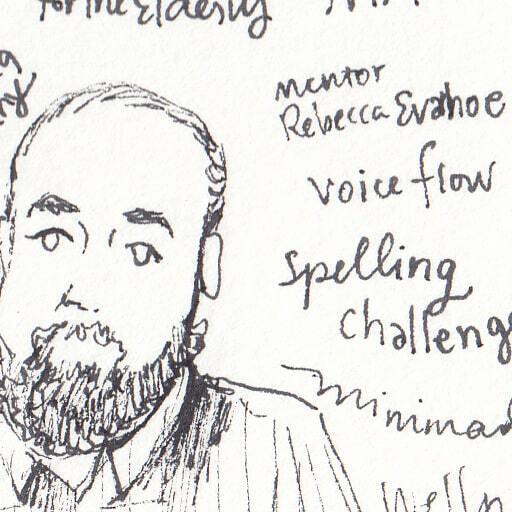 for the Elderly
mentor
Rebecca Evahoe
voice flow
spelling
challeng
minima